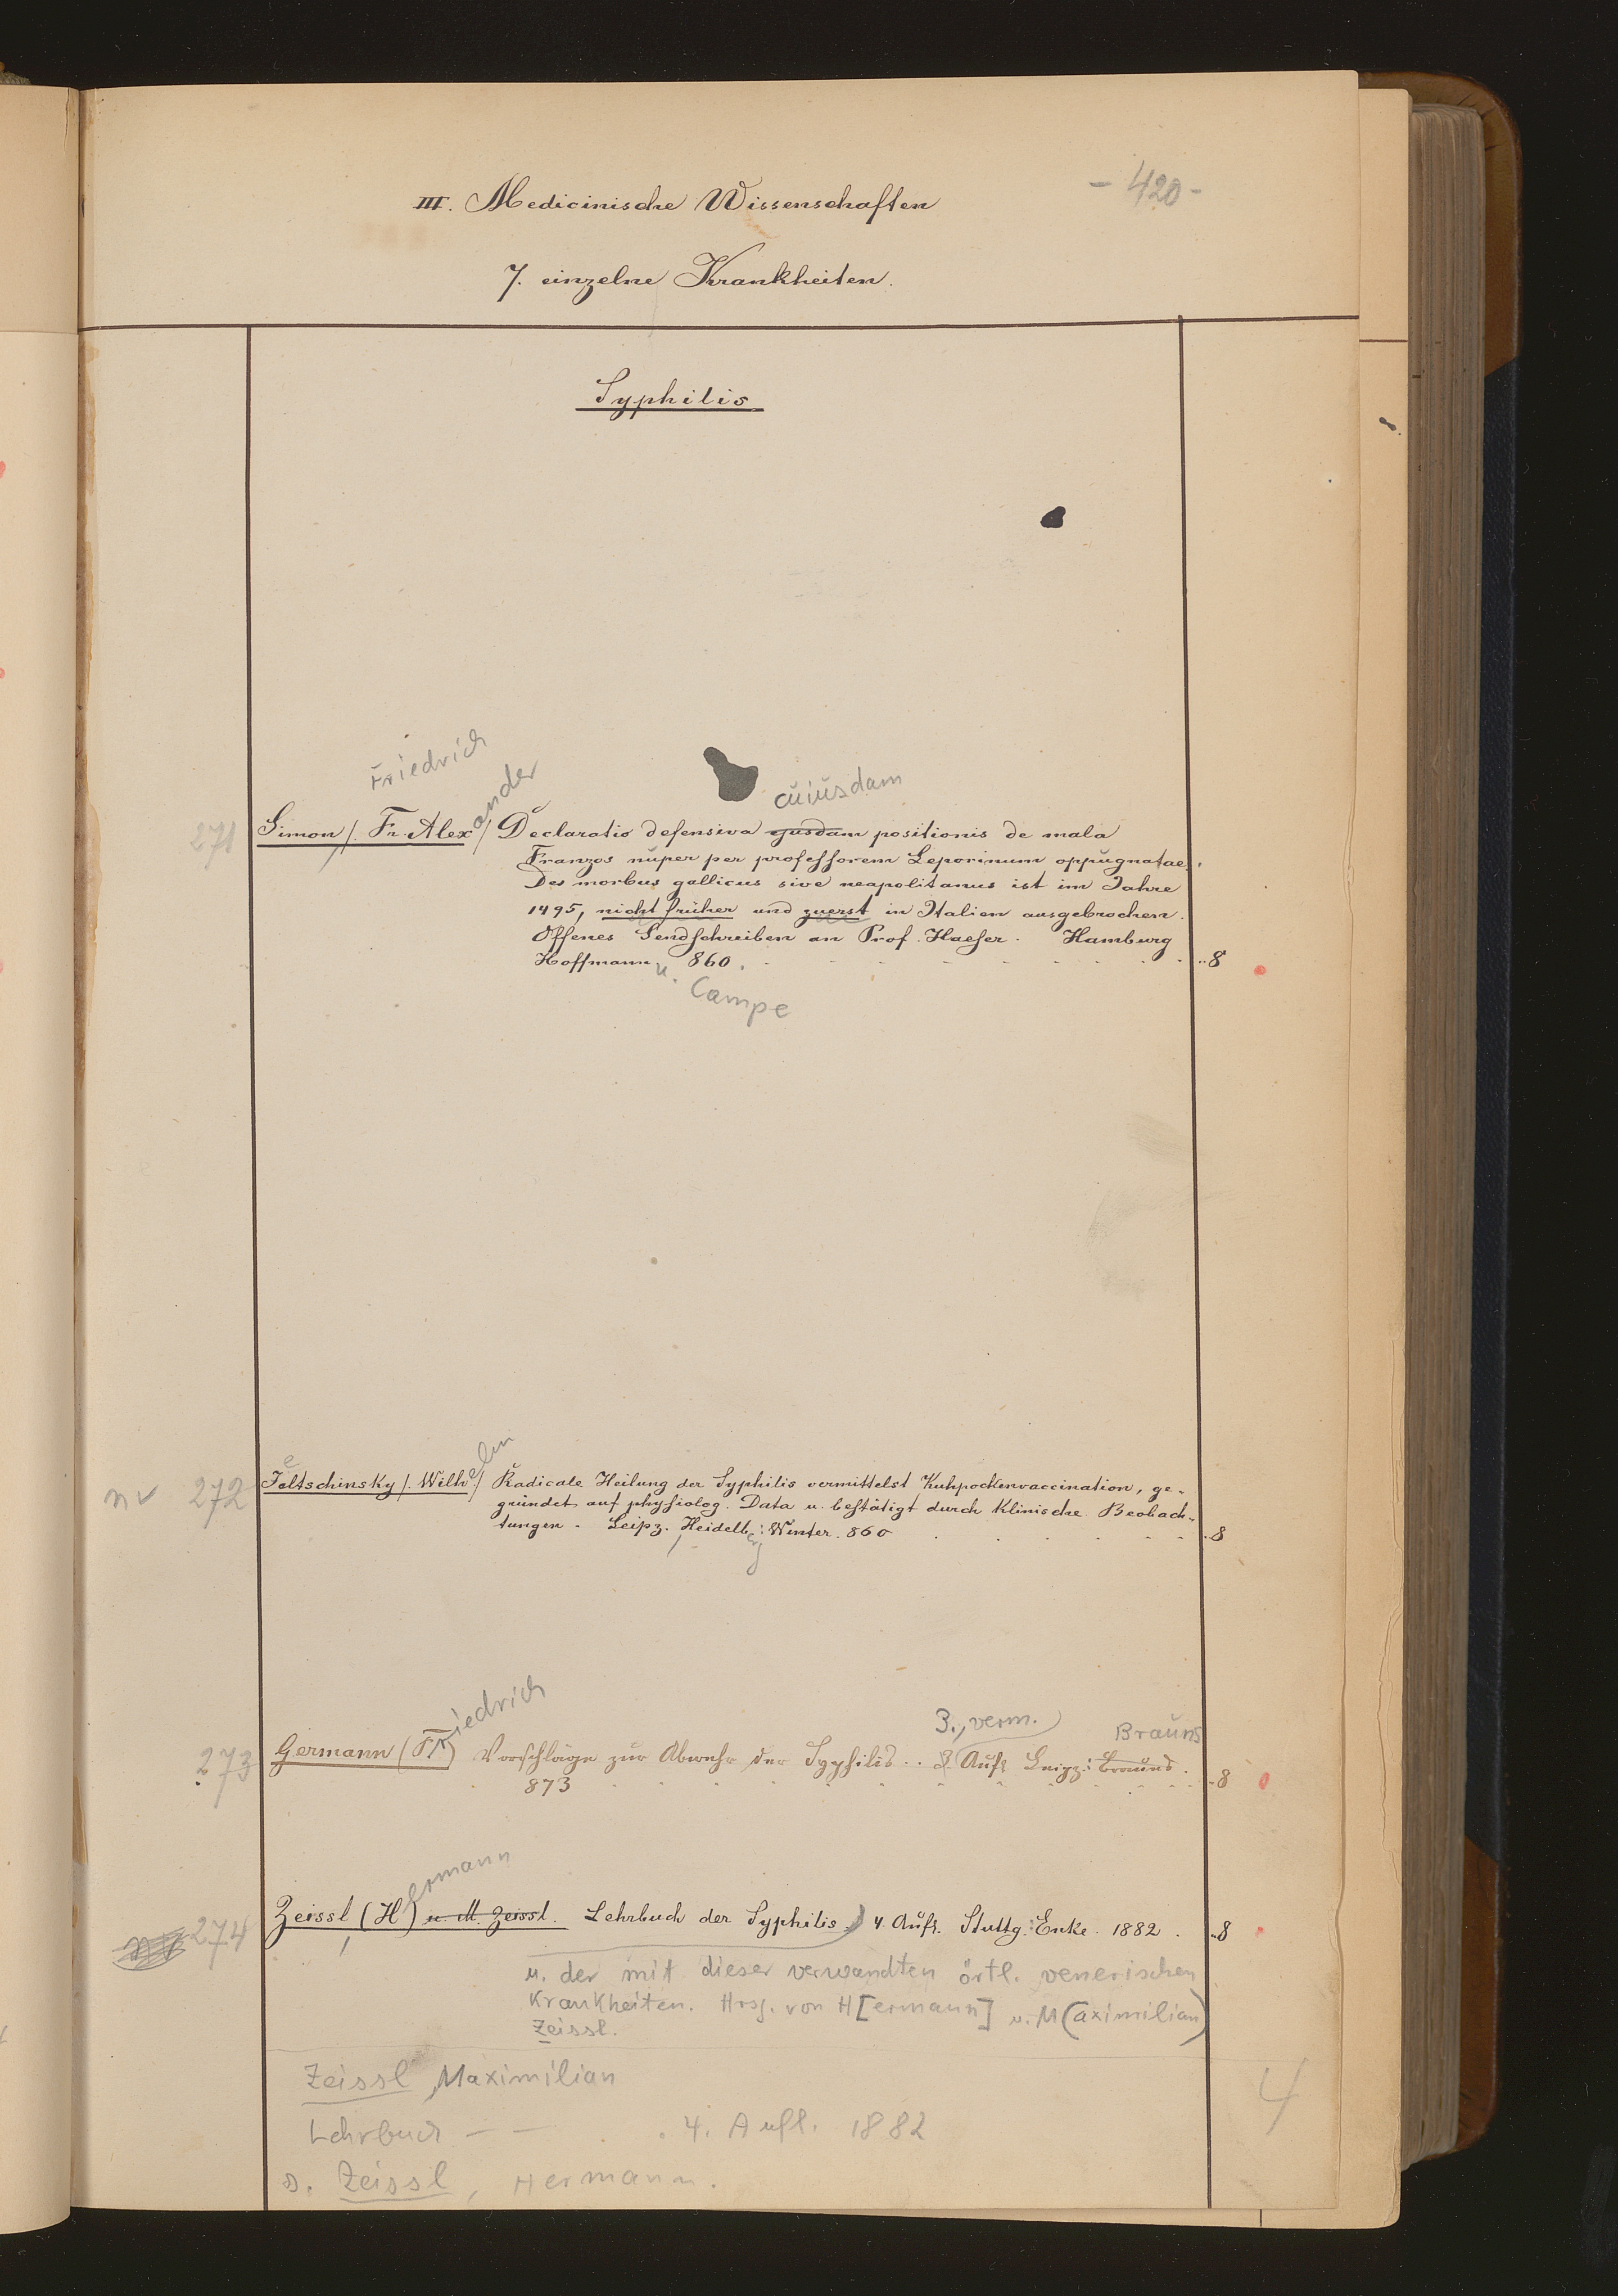 - 420 -
III. Medicinische Wissenschaften
7. einzelne Krankheiten.
Syphilis
Friedrich
ander
cuiusdam
271 Simon /. Fr. Alex / Declaratio defensiva gusdam positionis de mala
Franzos nuper per professorem Leporinum oppugnatae.
Des morbus gallicus sive neapolitanus ist im Jahre
1495, nicht früher und zuerst in Italien ausgebrochen.
Offenes Sendschreiben an Prof. Haeser. Hamburg
Hoffmann 860. 8
u. Campe
e
elm
nv 272 Foltschinsky /. Wilh. / Radicale Heilung der Syphilis vermittelst Kuhpockenvaccination, ge-
gründet auf physiolog. Data u. bestätigt durch Klinische Beobach-
tungen. Leipz. Heidelb: Winter. 860 8
erg
riedrich
3., verm. Brauns
273 Germann (Fr) Vorschläge zur Abwehr der Syphilis .. 3. Aufl Leipz: Brauns.
873 8
ermann
274 Zeissl (H) u. M. Zeissl. Lehrbuch der Syphilis. 4. Aufl. Stuttg: Enke. 1882. 8
u. der mit dieser verwandten örtl. venerischen
Krankheiten. Hrsg. von H[ermann] u. M(aximilian)
Zeissl.
Zeissl, Maximilian
4
Lehrbuch — — . 4. Aufl. 1882
s. Zeissl, Hermann.